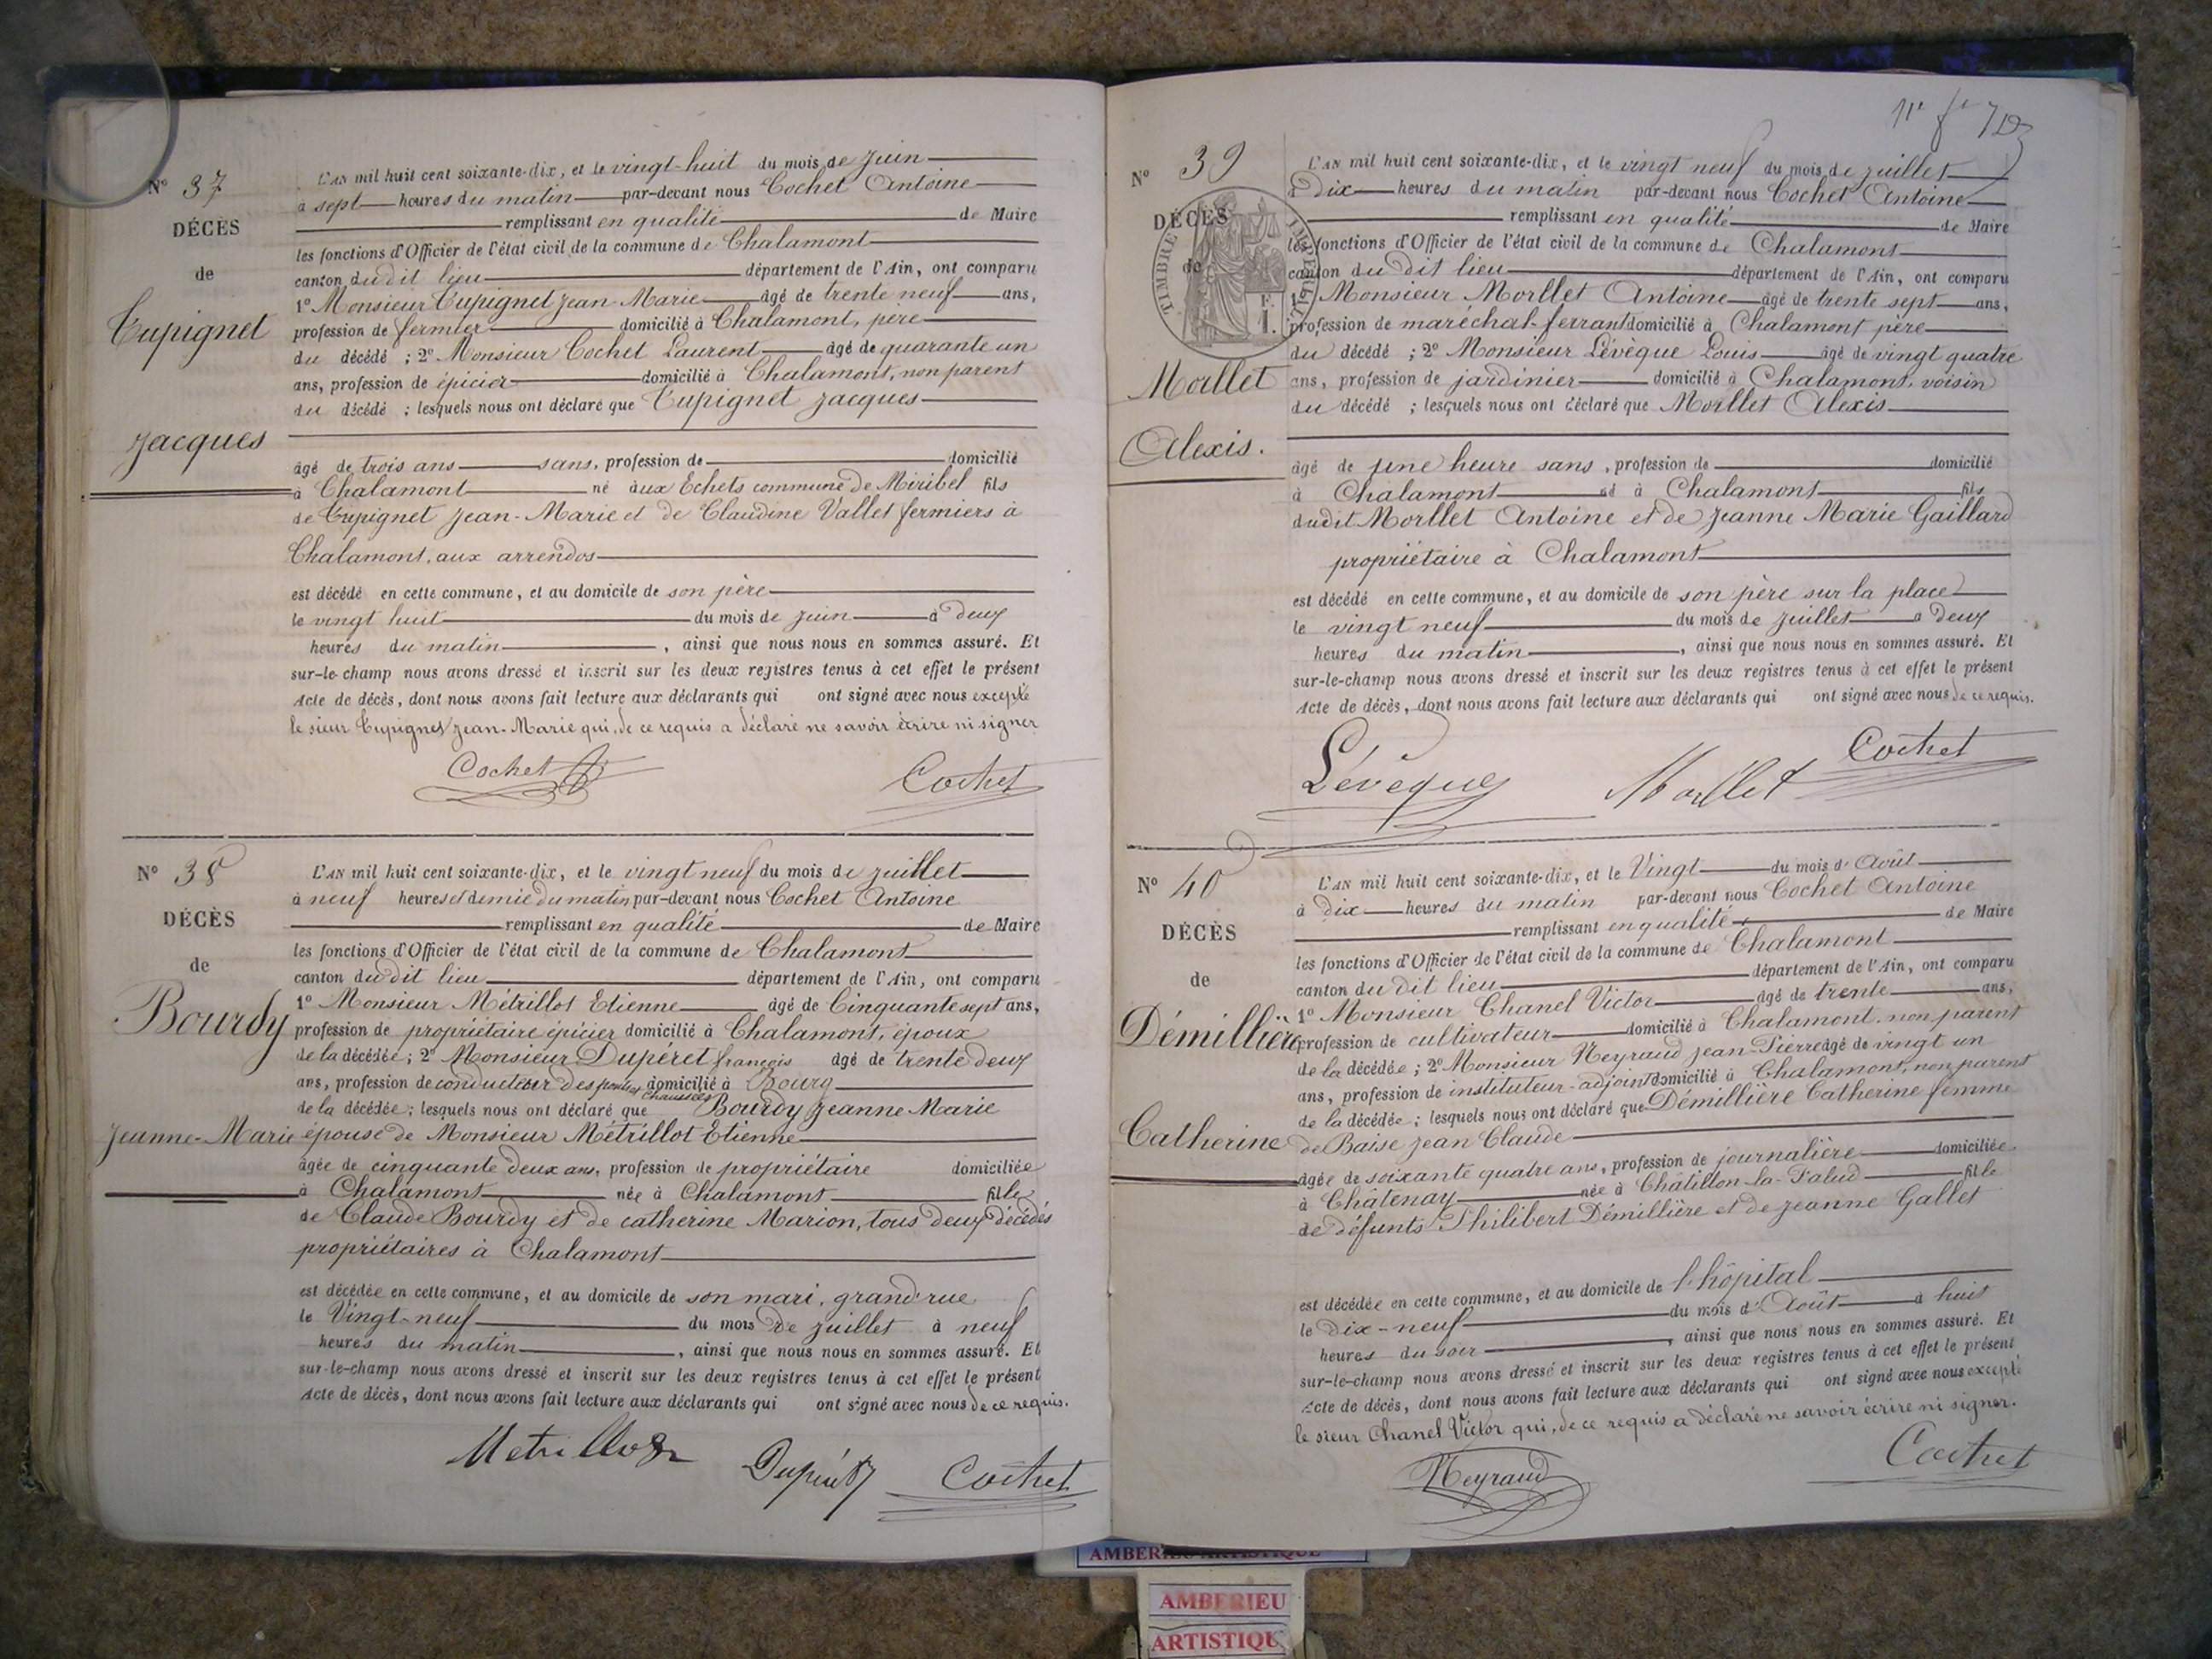 N° 37
DÉCÈS
de
Cupignet
Jacques
L'AN mil huit cent soixante-dix, et le vingt-huit du mois de Juin
à sept heures du matin par-devant nous Cochet Antoine
remplissant en qualité de Maire
les fonctions d'Officier de l'état civil de la commune de Chalamont
canton du dit lieu département de l'Ain, ont comparu
1° Monsieur Cupignet Jean-Marie âgé de trente neuf ans,
profession de fermier domicilié à Chalamont, père
du décédé ; 2° Monsieur Cochet Laurent âgé de quarante un
ans, profession de épicier domicilié à Chalamont, non parent
du décédé ; lesquels nous ont déclaré que Cupignet Jacques
âgé de trois ans sans, profession de domicilié
à Chalamont né aux Echets commune de Miribel fils
de Cupignet Jean-Marie et de Claudine Vallet fermiers à
Chalamont, aux arrendos
est décédé en cette commune, et au domicile de son père
le vingt huit du mois de Juin à deux
heures du matin, ainsi que nous nous en sommes assuré. Et
sur-le-champ nous avons dressé et inscrit sur les deux registres tenus à cet effet le présent
Acte de décès, dont nous avons fait lecture aux déclarants qui ont signé avec nous excepté
le sieur Cupignet Jean-Marie qui, de ce requis a déclaré ne savoir écrire ni signer
Cochet Cochet
N° 38
DÉCÈS
de
Bourdy
Jeanne-Marie
L'AN mil huit cent soixante-dix, et le vingt neuf du mois de juillet
à neuf heures et demie du matin par-devant nous Cochet Antoine
remplissant en qualité de Maire
les fonctions d'Officier de l'état civil de la commune de Chalamont
canton du dit lieu département de l'Ain, ont comparu
1° Monsieur Métrillot Etienne âgé de Cinquante sept ans,
profession de propriétaire épicier domicilié à Chalamont, époux
de la décédée ; 2° Monsieur Dupéret françois âgé de trente deux
ans, profession de conducteur des ponts chaussées domicilié à Bourg
de la décédée ; lesquels nous ont déclaré que Bourdy Jeanne Marie
épouse de Monsieur Métrillot Etienne
âgée de cinquante deux ans, profession de propriétaire domiciliée
à Chalamont née à Chalamont fille
de Claude Bourdy et de catherine Marion, tous deux décédés
propriétaires à Chalamont
est décédée en cette commune, et au domicile de son mari, grand'rue
le Vingt-neuf du mois de juillet à neuf
heures du matin, ainsi que nous nous en sommes assuré. Et
sur-le-champ nous avons dressé et inscrit sur les deux registres tenus à cet effet le présent
Acte de décès, dont nous avons fait lecture aux déclarants qui ont signé avec nous de ce requis.
Metrillot Dupéret Cochet
N° 39
DÉCÈS
de
TIMBRE IMPÉRIAL
Morllet
Alexis.
L'AN mil huit cent soixante-dix, et le vingt neuf du mois de juillet
à Dix heures du matin par-devant nous Cochet Antoine
remplissant en qualité de Maire
les fonctions d'Officier de l'état civil de la commune de Chalamont
canton du dit lieu département de l'Ain, ont comparu
1° Monsieur Morllet Antoine âgé de trente sept ans,
profession de maréchal-ferrant domicilié à Chalamont père
du décédé ; 2° Monsieur Lévèque Louis âgé de vingt quatre
ans, profession de jardinier domicilié à Chalamont, voisin
du décédé ; lesquels nous ont déclaré que Morllet Alexis
âgé de une heure sans, profession de domicilié
à Chalamont né à Chalamont fils
dudit Morllet Antoine et de Jeanne Marie Gaillard
propriétaire à Chalamont
est décédé en cette commune, et au domicile de son père sur la place
le vingt neuf du mois de juillet à deux
heures du matin, ainsi que nous nous en sommes assuré. Et
sur-le-champ nous avons dressé et inscrit sur les deux registres tenus à cet effet le présent
Acte de décès, dont nous avons fait lecture aux déclarants qui ont signé avec nous de ce requis.
Lévèque Morllet Cochet
N° 40
DÉCÈS
de
Démillière
Catherine
L'AN mil huit cent soixante-dix, et le Vingt du mois d'Août
à dix heures du matin par-devant nous Cochet Antoine
remplissant en qualité de Maire
les fonctions d'Officier de l'état civil de la commune de Chalamont
canton du dit lieu département de l'Ain, ont comparu
1° Monsieur Chanel Victor âgé de trente ans,
profession de cultivateur domicilié à Chalamont, non parent
de la décédée ; 2° Monsieur Neyraud Jean-Pierre âgé de vingt un
ans, profession de instituteur-adjoint domicilié à Chalamont, non parent
de la décédée ; lesquels nous ont déclaré que Démillière Catherine femme
de Baise Jean Claude
âgée de soixante quatre ans, profession de journalière domiciliée
à Châtenay née à Châtillon-la-Palud fille
de défunts Philibert Démillière et de Jeanne Gallet
est décédée en cette commune, et au domicile de l'hôpital
le dix-neuf du mois d'Août à huit
heures du soir, ainsi que nous nous en sommes assuré. Et
sur-le-champ nous avons dressé et inscrit sur les deux registres tenus à cet effet le présent
Acte de décès, dont nous avons fait lecture aux déclarants qui ont signé avec nous excepté
le sieur Chanel Victor qui, de ce requis a déclaré ne savoir écrire ni signer.
Neyraud Cochet
AMBERIEU ARTISTIQUE
AMBERIEU
ARTISTIQU